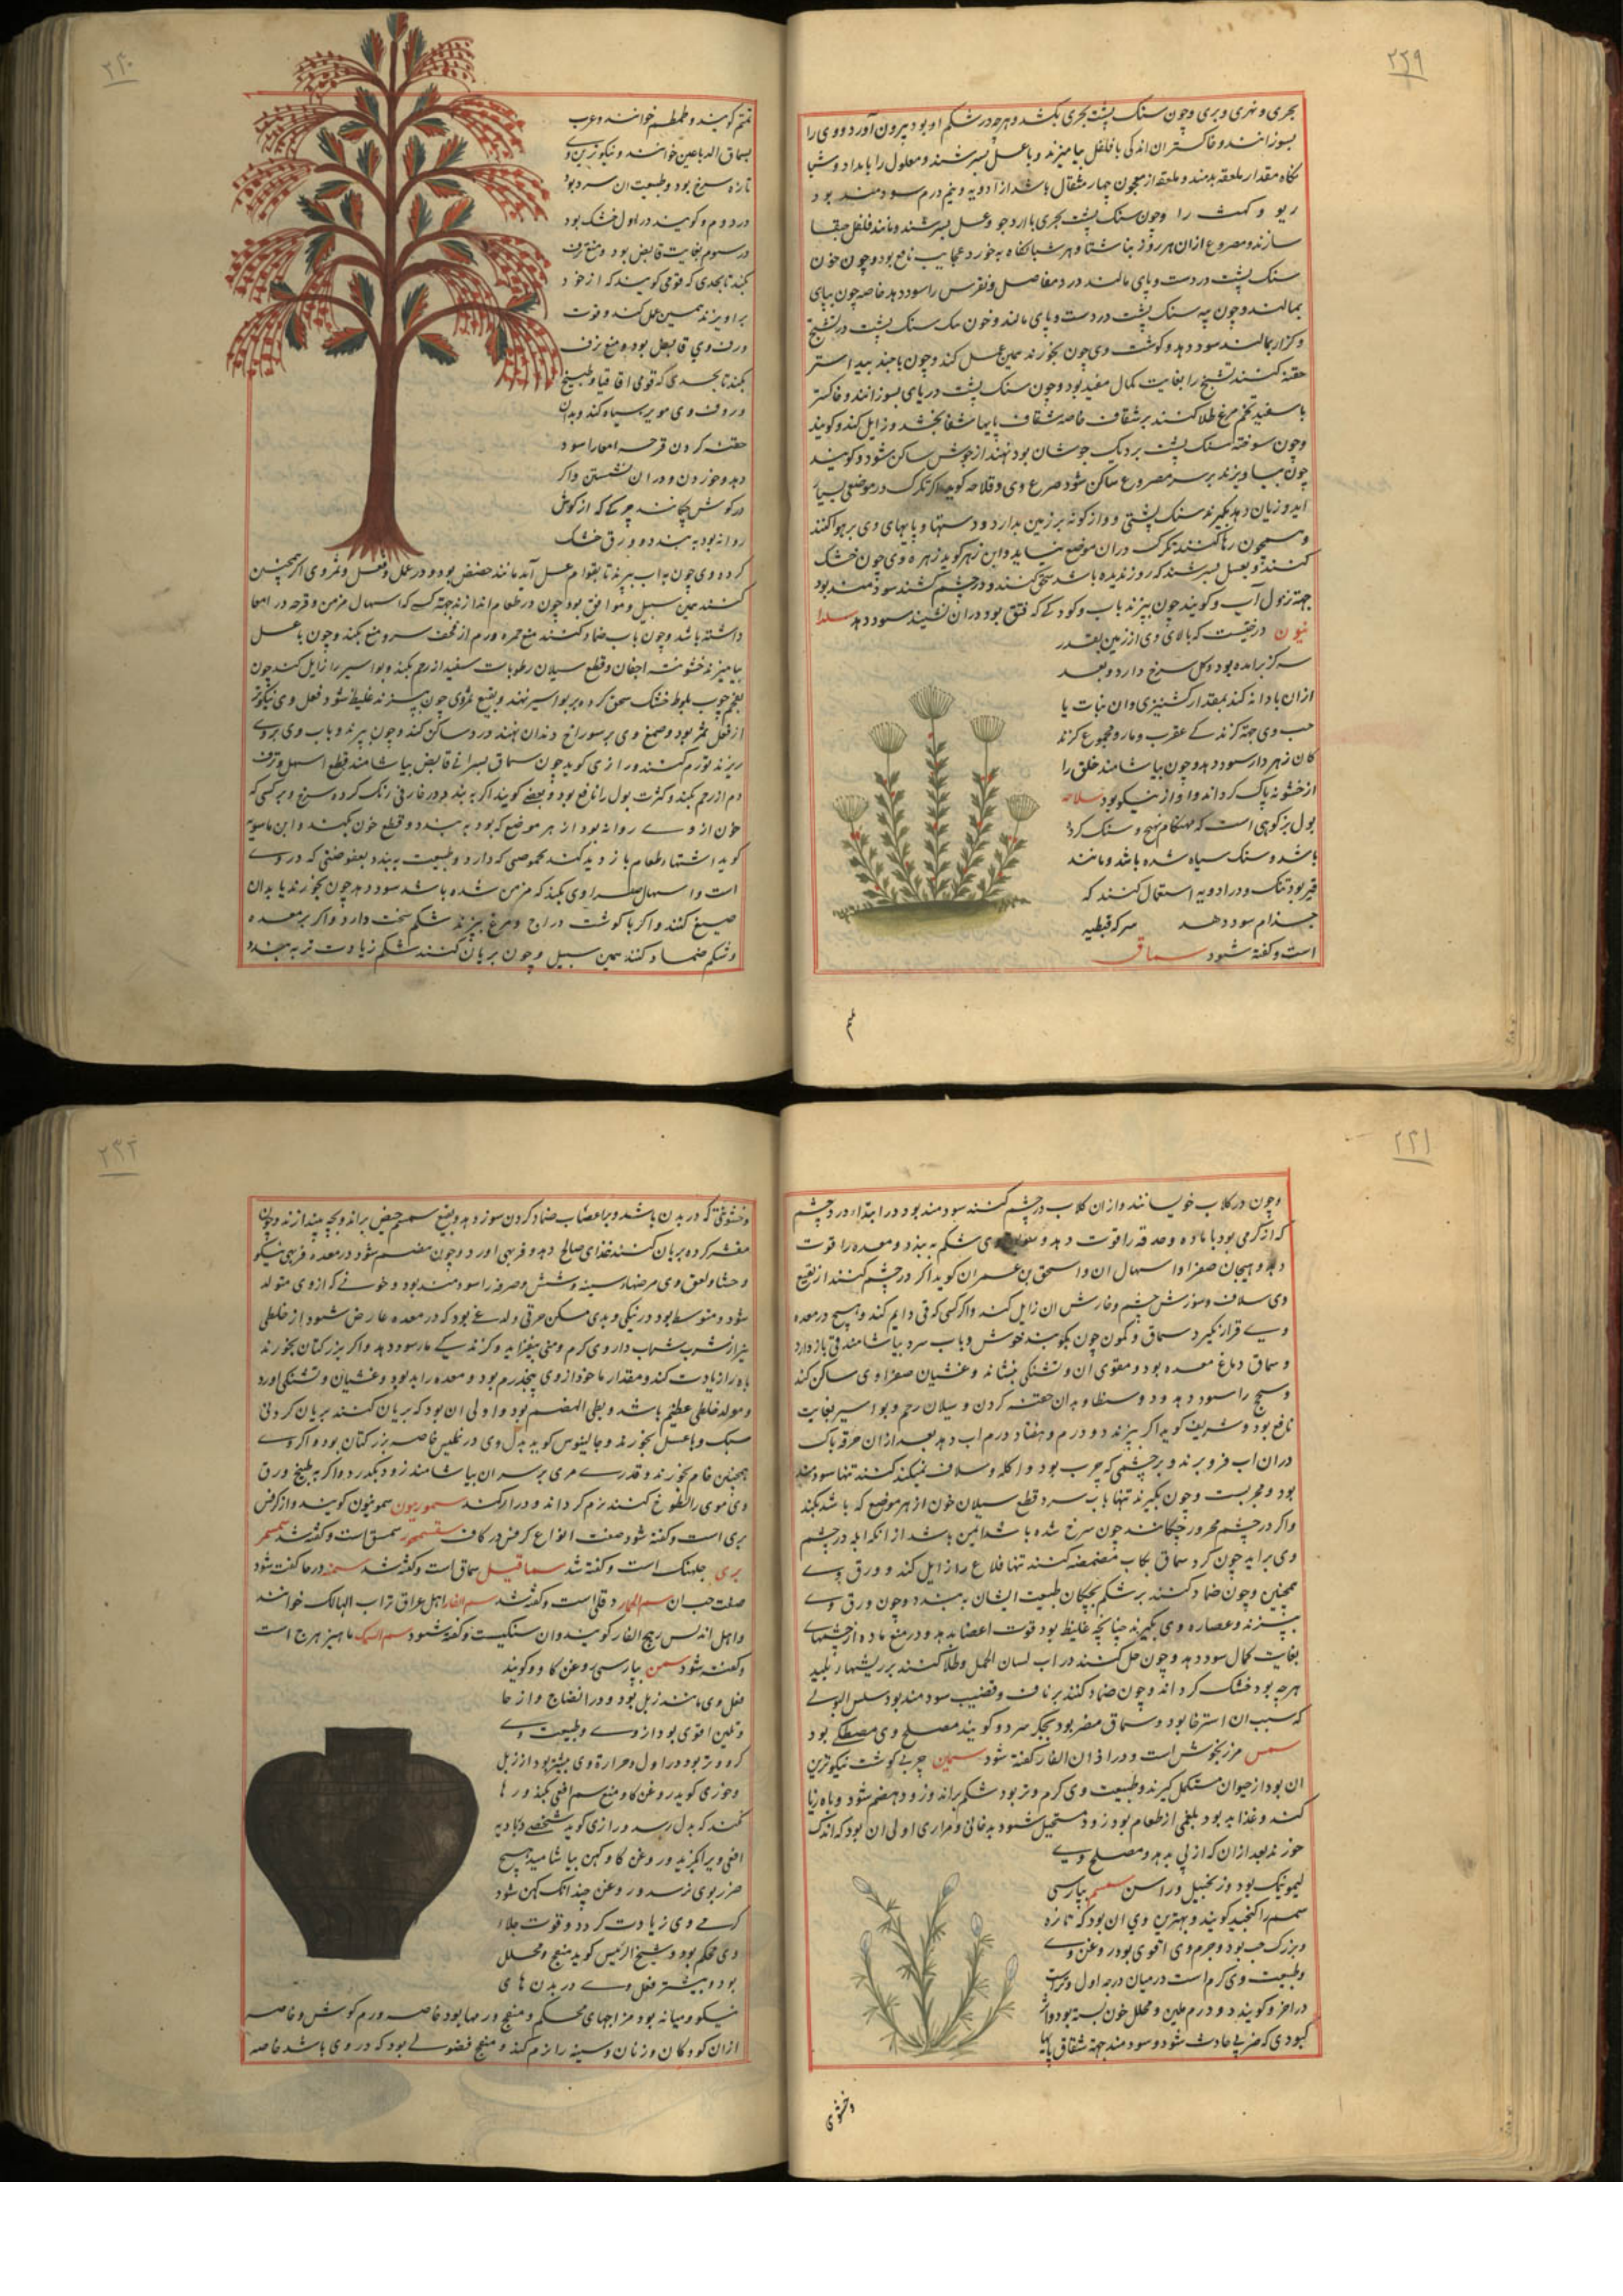 ۲۲۹
بحری و نهری و بری و چون سنک پشت بحری بکشند و هرچه در شکم او بود بیرون آورد و وی را
بسوزانند و خاکستر ان اندکی با فلفل بیامیزند و با عسل بسرشند و معلول را بامداد و شبا
نکاه مقدار ملعقه بدهند و ملعقه از معجون چهار مثقال باشد از ادویه و نیم درم سودمند بود
ربو و کهنه را و چون سنک پشت بحری با ارد جو و عسل بسرشند و مانند فلفل حبها
سازند و مصروع ازان هر روز بناشتا و هر شبانکاه بخورد عجایب نافع بود و چون خون
سنک پشت در دست و پای مالند درد مفاصل و نقرس را سود دهد خاصه چون بپای
بمالند و چون پیه سنک پشت در دست و پای مالند و خون سنک پشت در تشنج
و کزاز بمالند سود دهد و کوشت وی چون بخورند همین عمل کند و چون با جندبیداستر
حقنه کنند تشنج را بغایت کمال مفید بود و چون سنک پشت دریای بسوزانند و خاکستر
با سفیده تخم مرغ طلا کنند بر شقاق خاصه شقاق پایها شفا بخشد و زایل کند و کویند
و چون سوخته سنک پشت بر دیک جوشان بود نهند از جوش ساکن شود و کویند
چون بیاویزند بر سر مصروع ساکن شود صرع وی و فلاحه کوید اکر تکرک در موضعی بسیار
اید و زیان دهد بکیرند سنک پشتی و واژکونه بر زمین بدارد و دستها و پایهای وی بر هوا کنند
و همچون رها کنند تکرک دران موضع نیاید و ابن زهر کوید زهره وی چون خشک
کنند و بعسل بسرشند که روز ندیده باشد سحق کنند و در چشم کشند سودمند بود
جهة نزول آب و کویند چون بپزند باب و کودکی که فتق بود دران نشیند سود دهد سلدا
نیون درختیست که بالای وی از زمین بقدر
سه کز برامده بود و کل سرخ دارد و بعد
ازان بادانه کند بمقدار کشنیزی و ان نبات یا
حب وی جهة کزندکی عقرب و مار و مجموع کزند
کان زهردار سود دهد و چون بیاشامند حلق را
از خشونه پاک کرداند و اواز نیکو بود سلاحه
بول بز کوهی است که بهنکام تهیج و سنک کرد
باشد و سنک سیاه شده باشد و مانند
قیر بود تنک و در ادویه استعمال کنند که
جذام سود دهد سرکه قبطیه
است و کفته شود سماق
تمتم
۲۳۰
تمتم کویند و طمطم خوانند و عرب
بسماق الدباغین خوانند و نیکوترین وی
تازه سرخ بود و طبیعت ان سرد بود
در دوم و کویند در اول خشک بود
در سوم بغایت قابض بود و منع نزف
بکند تا بحدی که قومی کویند که از خود
براویزند همین عمل کند و قوت
ورق وی قابض بود و منع نزف
بکند تا بحدی که قومی اقاقیا و طبیخ
ورق وی موی سیاه کند و بدان
حقنه کردن قرحه امعا را سود
دهد و خوردن و دران نشستن و اکر
در کوش چکانند چرکی که از کوش
روانه بود ببندد و ورق خشک
کرده وی چون به اب بپزند تا بقوام عسل آید مانند حضض بود و در عمل و فعل و ثمر وی اکر همچنین
کنند همین سبیل و موافق بود چون در طعام اندازند جهة کسی که اسهال مزمن و قرحه در امعا
داشته باشد و چون باب ضماد کنند منع حمره ورم از قحف سر و منع بکند و چون با عسل
بیامیزند خشونة اجفان و قطع سیلان رطوبات سفید از رحم بکند و بواسیر را زایل کند چون
بفحم چوب بلوط خشک سحق کرده بر بواسیر نهند و نقیع ثمر وی چون بپزند غلیظ شود فعل وی نیکوتر
از فعل ثمر بود و صمغ وی بر سوراخ دندان نهند درد ساکن کند و چون بپزند و باب وی بروی
ریزند تورم کنند و رازی کوید چون سماق بسرانی قابض بیاشامند قطع اسهل و نزف
دم از رحم بکند و کثرت بول را نافع بود و بعضی کویند اکر ببندد در خارقی رنک کرده سرخ و بر کسی که
خون از وی روانه بود از هر موضع که بود ببندد و قطع خون بکند و ابن ماسویه
کوید اشتهاء طعام باز دید کند بحموضی که دارد و طبیعت ببندد بعفوصتی که در وی
است و اسهال صفراوی بکند که مزمن شده باشد سود دهد چون بخورند یا بدان
صبغ کنند و اکر با کوشت دراج و مرغ بپزند شکم سخت دارد و اکر بر معده
و شکم ضماد کنند همین سبیل و چون بریان کنند شکم زیادت تر ببندد
۲۳۱
و چون در کلاب خویسانند و ازان کلاب در چشم کنند سودمند بود در ابتداء درد چشم
که از کرمی بود با ماده و حدقه را قوت دهد و وی شکم ببندد و معده را قوت
دهد و هیجان صفرا و اسهال ان و اسحق بن عمران کوید اکر در چشم کنند از نقیع
وی سلاق و سوزش چشم و خارش ان زایل کند و اکر کسی که قی دایم کند و هیچ در معده
وی قرار نکیرد سماق و کمون چون بکوبند خوش و باب سرد بیاشامند قی باز دارد
و سماق دباغ معده بود و مقوی ان و تشنکی بنشاند و غثیان صفراوی ساکن کند
و سحج را سود دهد و دوسنطاریا بدان حقنه کردن و سیلان رحم و بواسیر بغایت
نافع بود و شریف کوید اکر بپزند دو درم و هفتاد درم اب دهد بعد ازان خرقه پاک
دران اب فرو برند و بر چشمی که جرب بود و اکله و سلاق بکنند تنها سودمند
بود و مجربست و چون بکیرند تنها باب سرد قطع سیلان خون از هر موضع که باشد بکند
و اکر در چشم محرور چکانند چون سرخ شده باشد ایمن باشد از انکه ابله در چشم
وی براید چون کرد سماق بکلاب مضمضه کنند تنها قلاع را زایل کند و ورق وی
همچنین و چون ضماد کنند بر شکم بچکان طبیعت ایشان ببندد و چون ورق وی
بپزند و عصاره وی بکیرند چنانچه غلیظ بود قوت اعضا بدهد و در منع ماده از چشمها
بغایت کمال سود دهد و چون حل کنند در اب لسان الحمل و طلا کنند بر ریشهاء پلید
هرچه بود خشک کرداند و چون ضماد کنند بر ناف و قضیب سودمند بود سلس البولی
که سبب ان استرخا بود و سماق مضر بود بجکر سرد و کویند مصلح وی مصطکی بود
سمسق مرزنجوش است و در اذان الفار کفته شود سمین چربی کوشت نیکوترین
ان بود از حیوان مستکمل کیرند و طبیعت وی کرم و تر بود شکم براند و زود هضم شود و باه زیا
کند و غذا بد بود بلغمی از طعام بود زود مستحیل شود بدخانی و مراری اولی ان بود که اندک
خورند بعد ازان که از پی بدهد و مصلح وی
لیمونیک بود و زنجبیل و راسن سمسم بپارسی
سمسم را کنجد کویند و بهترین وی ان بود که تازه
و بزرک حب بود و جرم وی اقوی بود روغن وی
و طبیعت وی کرم است در میان درجه اول و تراست
در اخر و کویند دو درم ملین و محلل خون بسته بود و اثر
کبودی که ضربی حادث شود و سودمند جهة شقاق پایها
و خشونتی
۲۳۲
و خشونتی که در بدن باشد و بر اعصاب ضماد کردن سود دهد و نقیع سمسم حیض براند و بچه بیندازند و چون
مقشر کرده بریان کنند غذای صالح دهد و فربهی اورد و چون هضم شود در معده فربهی نیکو
و حشا و لعق وی مرضهاء سینه و شش و صرفه را سودمند بود و خونی که از وی متولد
شود و متوسط بود در نیکی و بدی مسکن حرقتی و لدغی بود که در معده عارض شود از خلطی
تیز از شرب شراب داروی کرم و منی بیفزاید و کزندکی مار سود دهد و اکر بزر کتان بخورند
باه را زیادت کند و مقدار ماخوذ از وی پنجدرم بود و معده را بد بود و غثیان و تشنکی اورد
و مولد خلطی عظیم باشد و بطی الهضم بود و اولی ان بود که بریان کنند بریان کردنی
سبک و با عسل بخورند و جالینوس کوید بدل وی در تغلیس خاصه بزر کتان بود و اکر وی
همچنین خام بخورند و قدری مری بر سر ان بیاشامند زود بکذرد و اکر به طبیخ ورق
وی موی را لطوخ کنند نرم کرداند و دراز کند سموریون سمونیون کویند و از کرفس
بری است و کفته شود صفت انواع کرفس در کاف سمسحون سمسق است و کفته شد سمسم
بری جلبهنک است و کفته شد سماقیل سماق است و کفته شد سمنه در حا کفت شود
صفت حب ان سم الحمار دفلی است و کفته شد سم الفار اهل عراق تراب الهالک خوانند
و اهل اندلس رهج الفار کویند و ان سنکیست و کفته شود سم السمک ماهیزهرج است
و کفته شود سمن بپارسی روغن کاو و کویند
فعل وی مانند زبل بود و در انضاج و ارخا
و تلیین اقوی بود از وی و طبیعت وی
کرم و تر بود در اول و حرارة وی بیشتر بود از زبل
و خوزی کوید روغن کاو منع سم افعی بکند و رها
نکند که بدل رسد و رازی کوید شخصی در بادیه
افعی ویرا بکزید و روغن کاو کهن بیاشامید هیچ
ضرر بوی نرسد و روغن چندانک کهن شود
کرمی وی زیادت کردد و قوت جلاء
وی محکم بود و شیخ الرئیس کوید منضج و محلل
بود و بیشتر فعل وی در بدن های
نیکو و میانه بود مزاجهای محکم و منضج ورمها بود خاصه ورم کوش و خاصه
ازان کودکان و زنان و سینه را نرم کند و منضج فضولی بود که در وی باشد خاصه